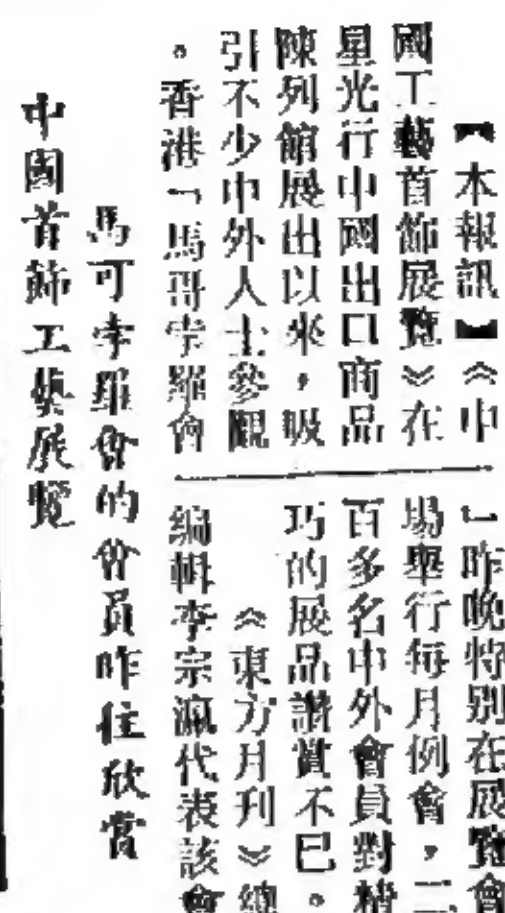 【本報訊】《中
國工藝首飾展覽》在
星光行中國出口商品
陳列館展出以來，吸
引不少中外人士參觀
。香港「馬哥孛羅會
」昨晚特別在展覽會
場舉行每月例會，二
百多名中外會員對精
巧的展品讚賞不已。
《東方月刊》總
編輯李宗瀛代表該會
馬可孛羅會的會員昨往欣賞
中國首飾工藝展覽